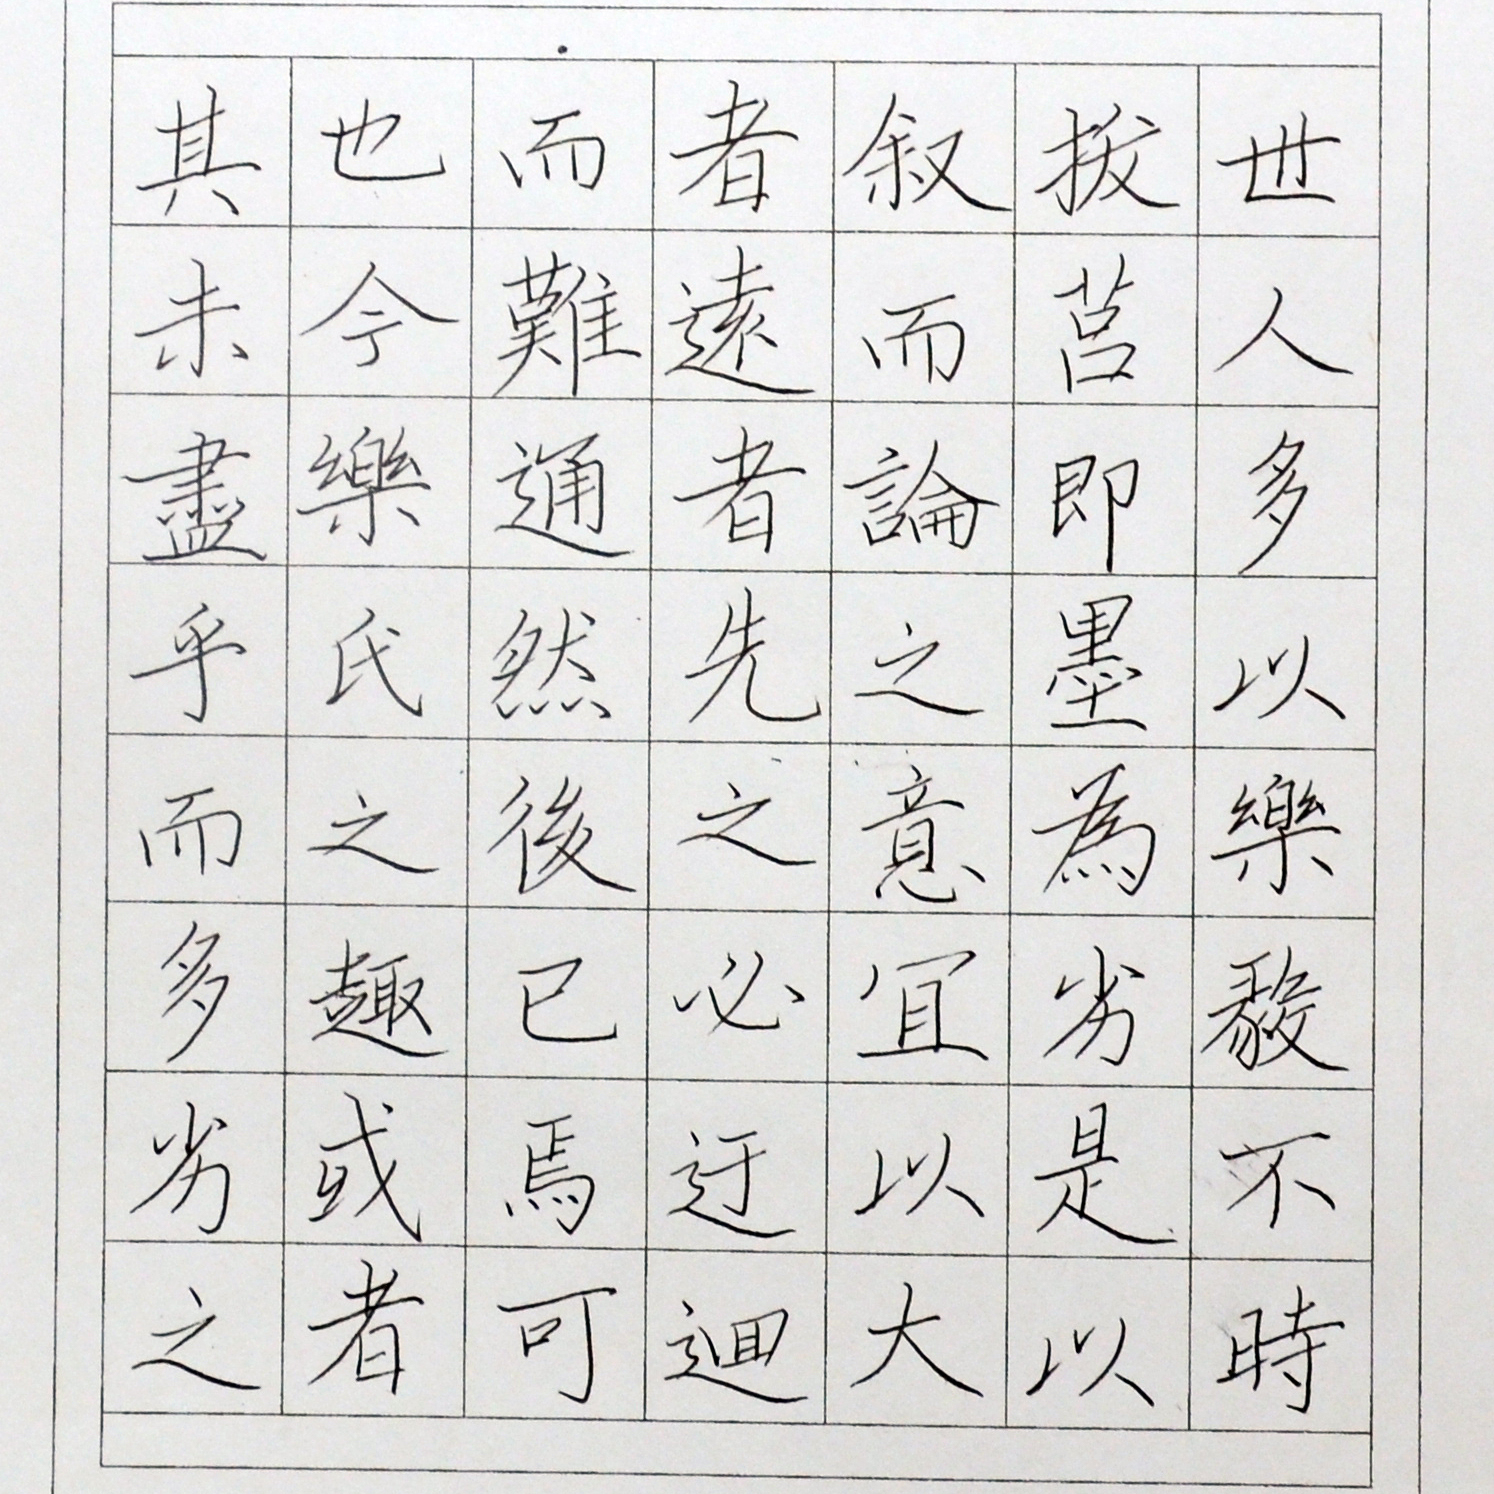 世人多以樂毅不時
拔莒即墨為劣是以
叙而論之意宜以大
者遠者先之必迂迴
而難通然後已焉可
也今樂氏之趣或者
其未盡乎而多劣之